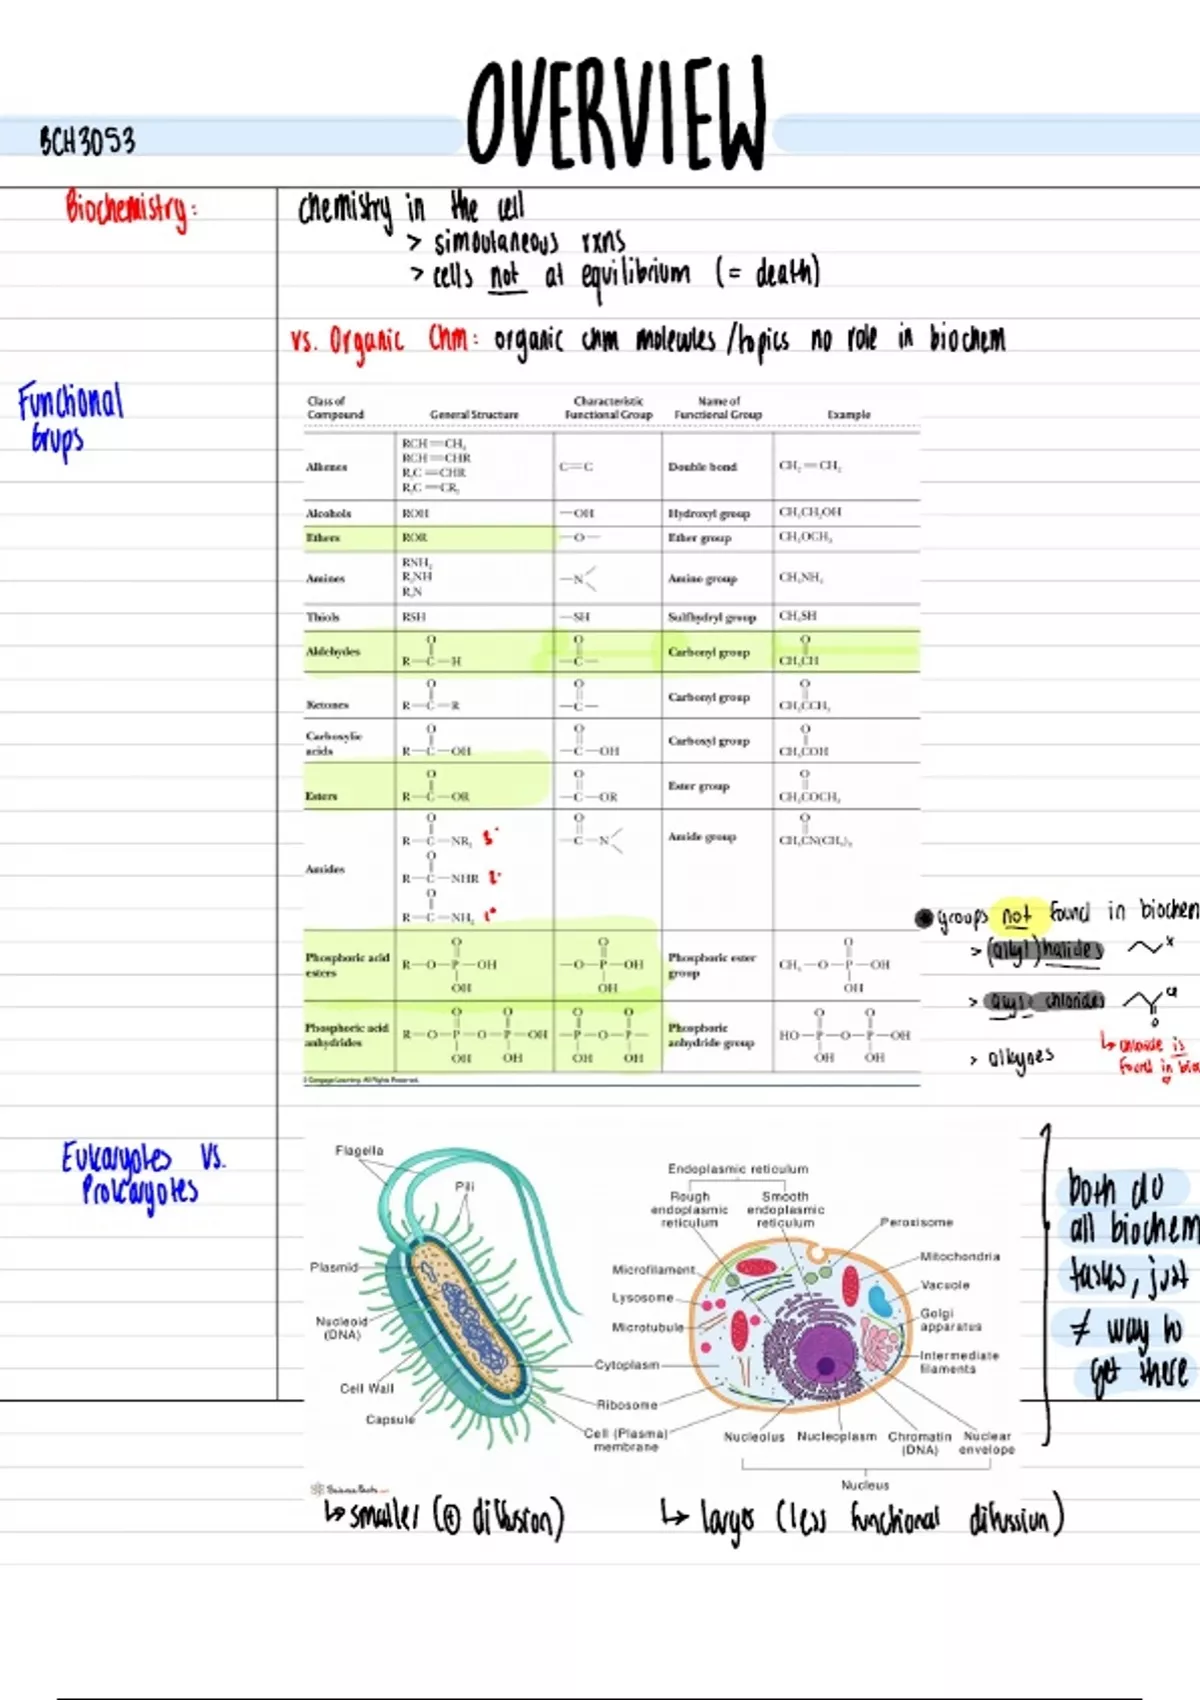 OVERVIEW
BCH3053
Biochemistry:
chemistry in the cell
> simoutaneous rxns
> cells not at equilibrium (= death)
vs. Organic Chm: organic chm molecules/topics no role in biochem
Functional
Grups
Class of Compound General Structure Characteristic Functional Group Name of Functional Group Example
Alkenes RCH=CH₂ C=C Double bond CH₂=CH₂
RCH=CHR
R₂C=CHR
R₂C=CR₂
Alcohols ROH —OH Hydroxyl group CH₃CH₂OH
Ethers ROR —O— Ether group CH₃OCH₃
Amines RNH₂ —N Amino group CH₃NH₂
R₂NH
R₃N
Thiols RSH —SH Sulfhydryl group CH₃SH
O O O
Aldehydes R—C—H —C— Carbonyl group CH₃CH
O O O
Ketones R—C—R —C— Carbonyl group CH₃CCH₃
O O O
Carboxylic acids R—C—OH —C—OH Carboxyl group CH₃COH
O O O
Esters R—C—OR —C—OR Ester group CH₃COCH₃
O O O
Amides R—C—NR₂ 3° —C—N Amide group CH₃CN(CH₃)₂
O
R—C—NHR 2°
O
R—C—NH₂ 1°
O O O
Phosphoric acid esters R—O—P—OH —O—P—OH Phosphoric ester group CH₃—O—P—OH
OH OH OH
O O O O O O
Phosphoric acid anhydrides R—O—P—O—P—OH —P—O—P— Phosphoric anhydride group HO—P—O—P—OH
OH OH OH OH OH OH
© Cengage Learning. All Rights Reserved.
groups not found in biochem
> (alkyl) halides X
> acyl chlorides Cl
O
> alkynes
↳ chloride is
found in bio
Eukaryotes vs.
Prokaryotes
Flagella
Pili
Plasmid
Nucleoid
(DNA)
Cell Wall
Capsule
Cytoplasm
Ribosome
Cell (Plasma)
membrane
Endoplasmic reticulum
Rough
endoplasmic
reticulum
Smooth
endoplasmic
reticulum
Peroxisome
Microfilament
Mitochondria
Lysosome
Vacuole
Microtubule
Golgi
apparatus
Intermediate
filaments
Nucleolus
Nucleoplasm
Chromatin
(DNA)
Nuclear
envelope
Nucleus
both do
all biochem
tasks, just
≠ way to
get there
Science Facts
↳ smaller (⊕ diffusion)
↳ larger (less functional diffusion)